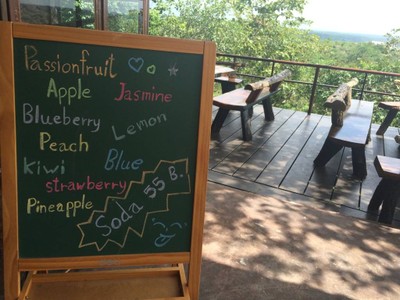 Passionfruit
Apple Jasmine
Blueberry Lemon
Peach
Kiwi Blue
strawberry
Pineapple
Soda 55 B.